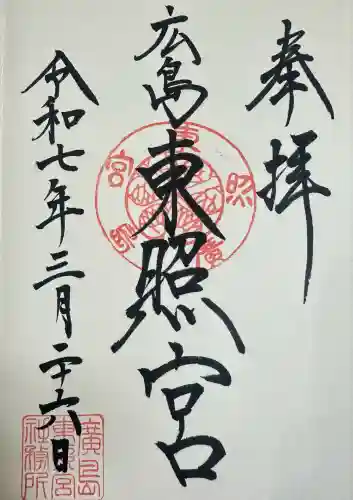 奉拝
広島東照宮
令和七年三月二十六日
廣島
東照宮
社務所